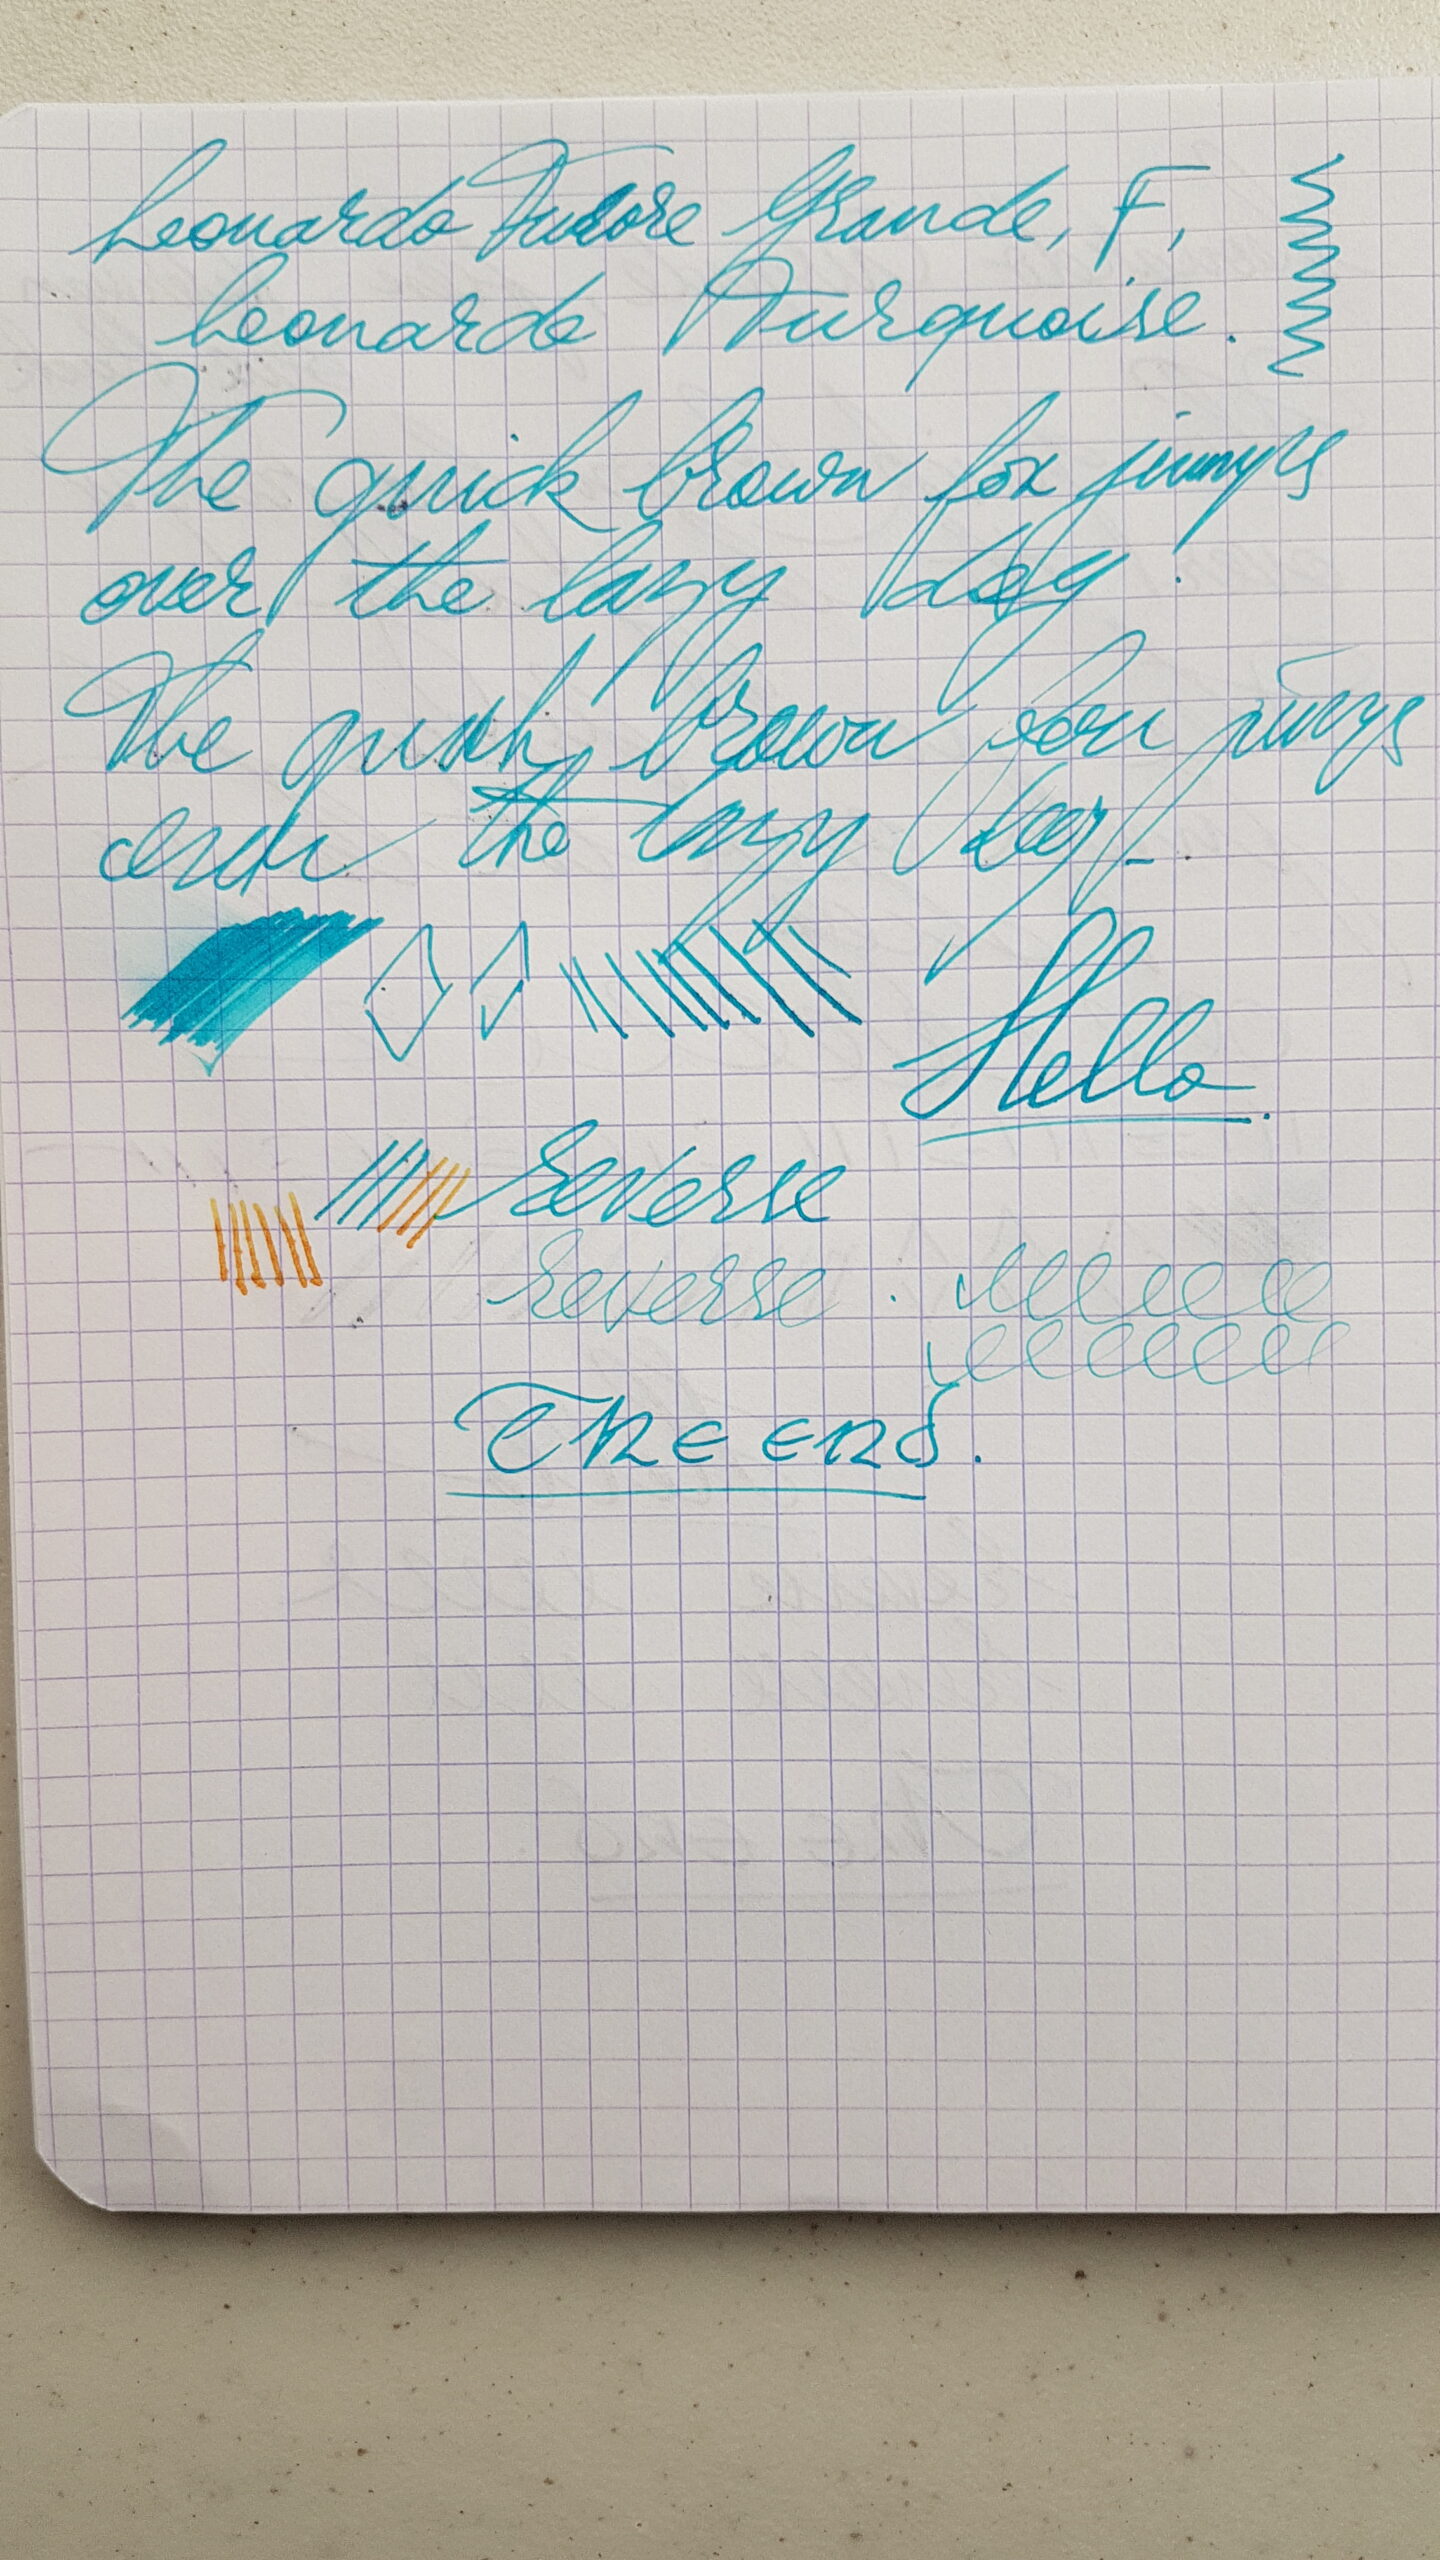 Leonardo Furore Grande, F,
Leonardo Turquoise.
The quick brown fox jumps
over the lazy dog!
The quick brown fox jumps
over the lazy dog.
Hello.
Reverse
Reverse.
The end.